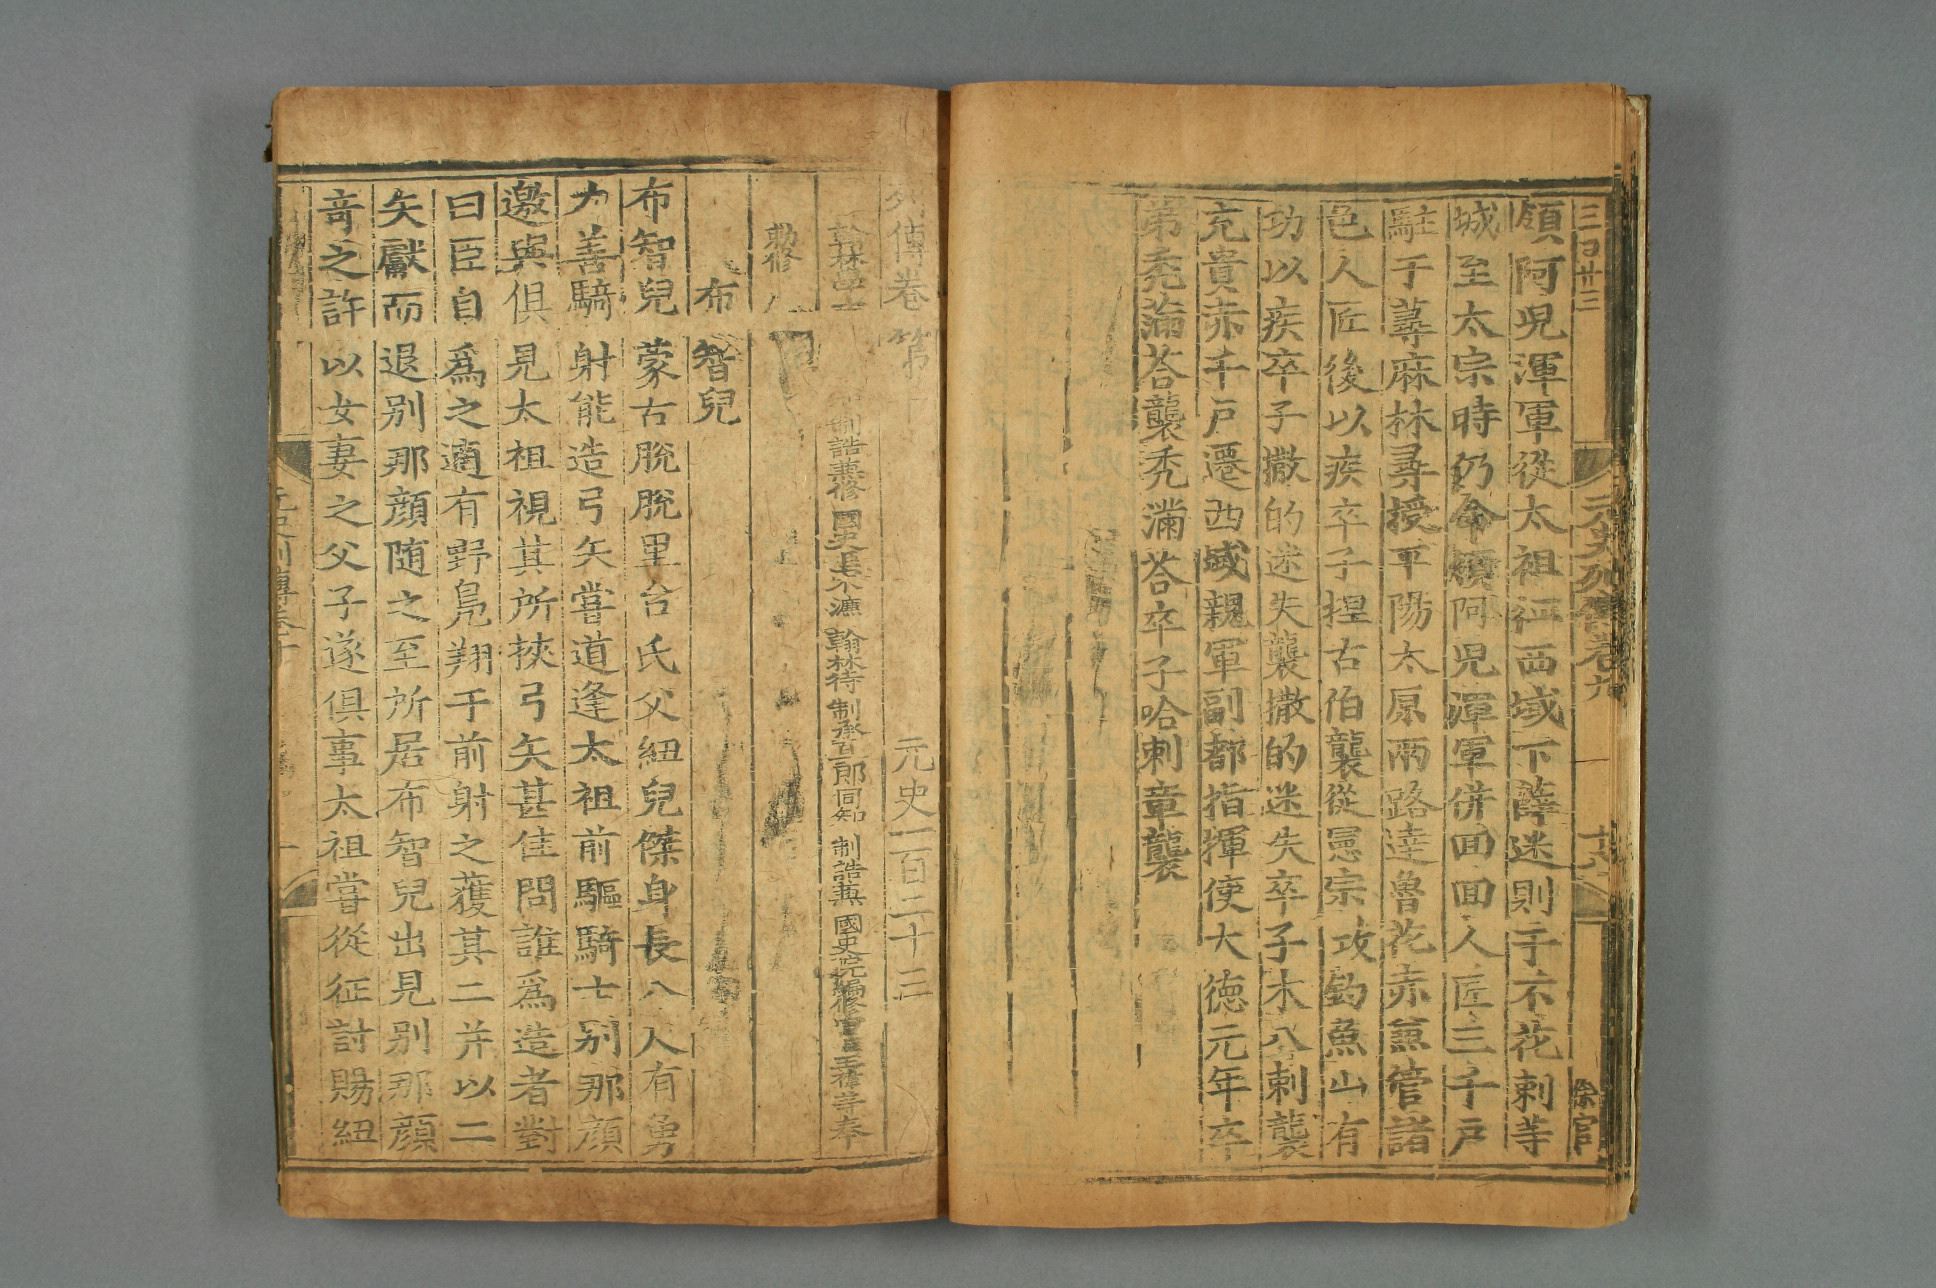 三日廿三
元史列傳卷六
十八
徐官
領阿児渾軍從太祖征西域下薛迷則于不花剌寺
城至太宗時仍命領阿児渾軍併回回人匠三千戶
駐于蕁麻林尋授平陽太原兩路達魯花赤兼管諸
邑人匠後以疾卒子揑古伯襲從憲宗攻釣魚山有
功以疾卒子撒的迷失襲撒的迷失卒子木八剌襲
充貴赤千戶遷西域親軍副都指揮使大德元年卒
第禿滿荅襲禿滿荅卒子哈剌章襲
列傳卷第十 元史一百二十三
翰林學士 制誥兼修 國史 濂 翰林待 制承直郎同知 制誥兼 國史院編修官 王褘等奉
勅修
布智兒
布智兒蒙古脫脫里台氏父紐兒傑身長八人有勇
力善騎射能造弓矢嘗道逢太祖前驅騎士别那顔
邀與俱見太祖視其所挾弓矢甚佳問誰爲造者對
曰臣自爲之適有野鳧翔于前射之獲其二并以二
矢獻而退别那顔随之至所居布智兒出見别那顔
竒之許以女妻之父子遂俱事太祖嘗從征討賜紐
元史列傳卷十
一